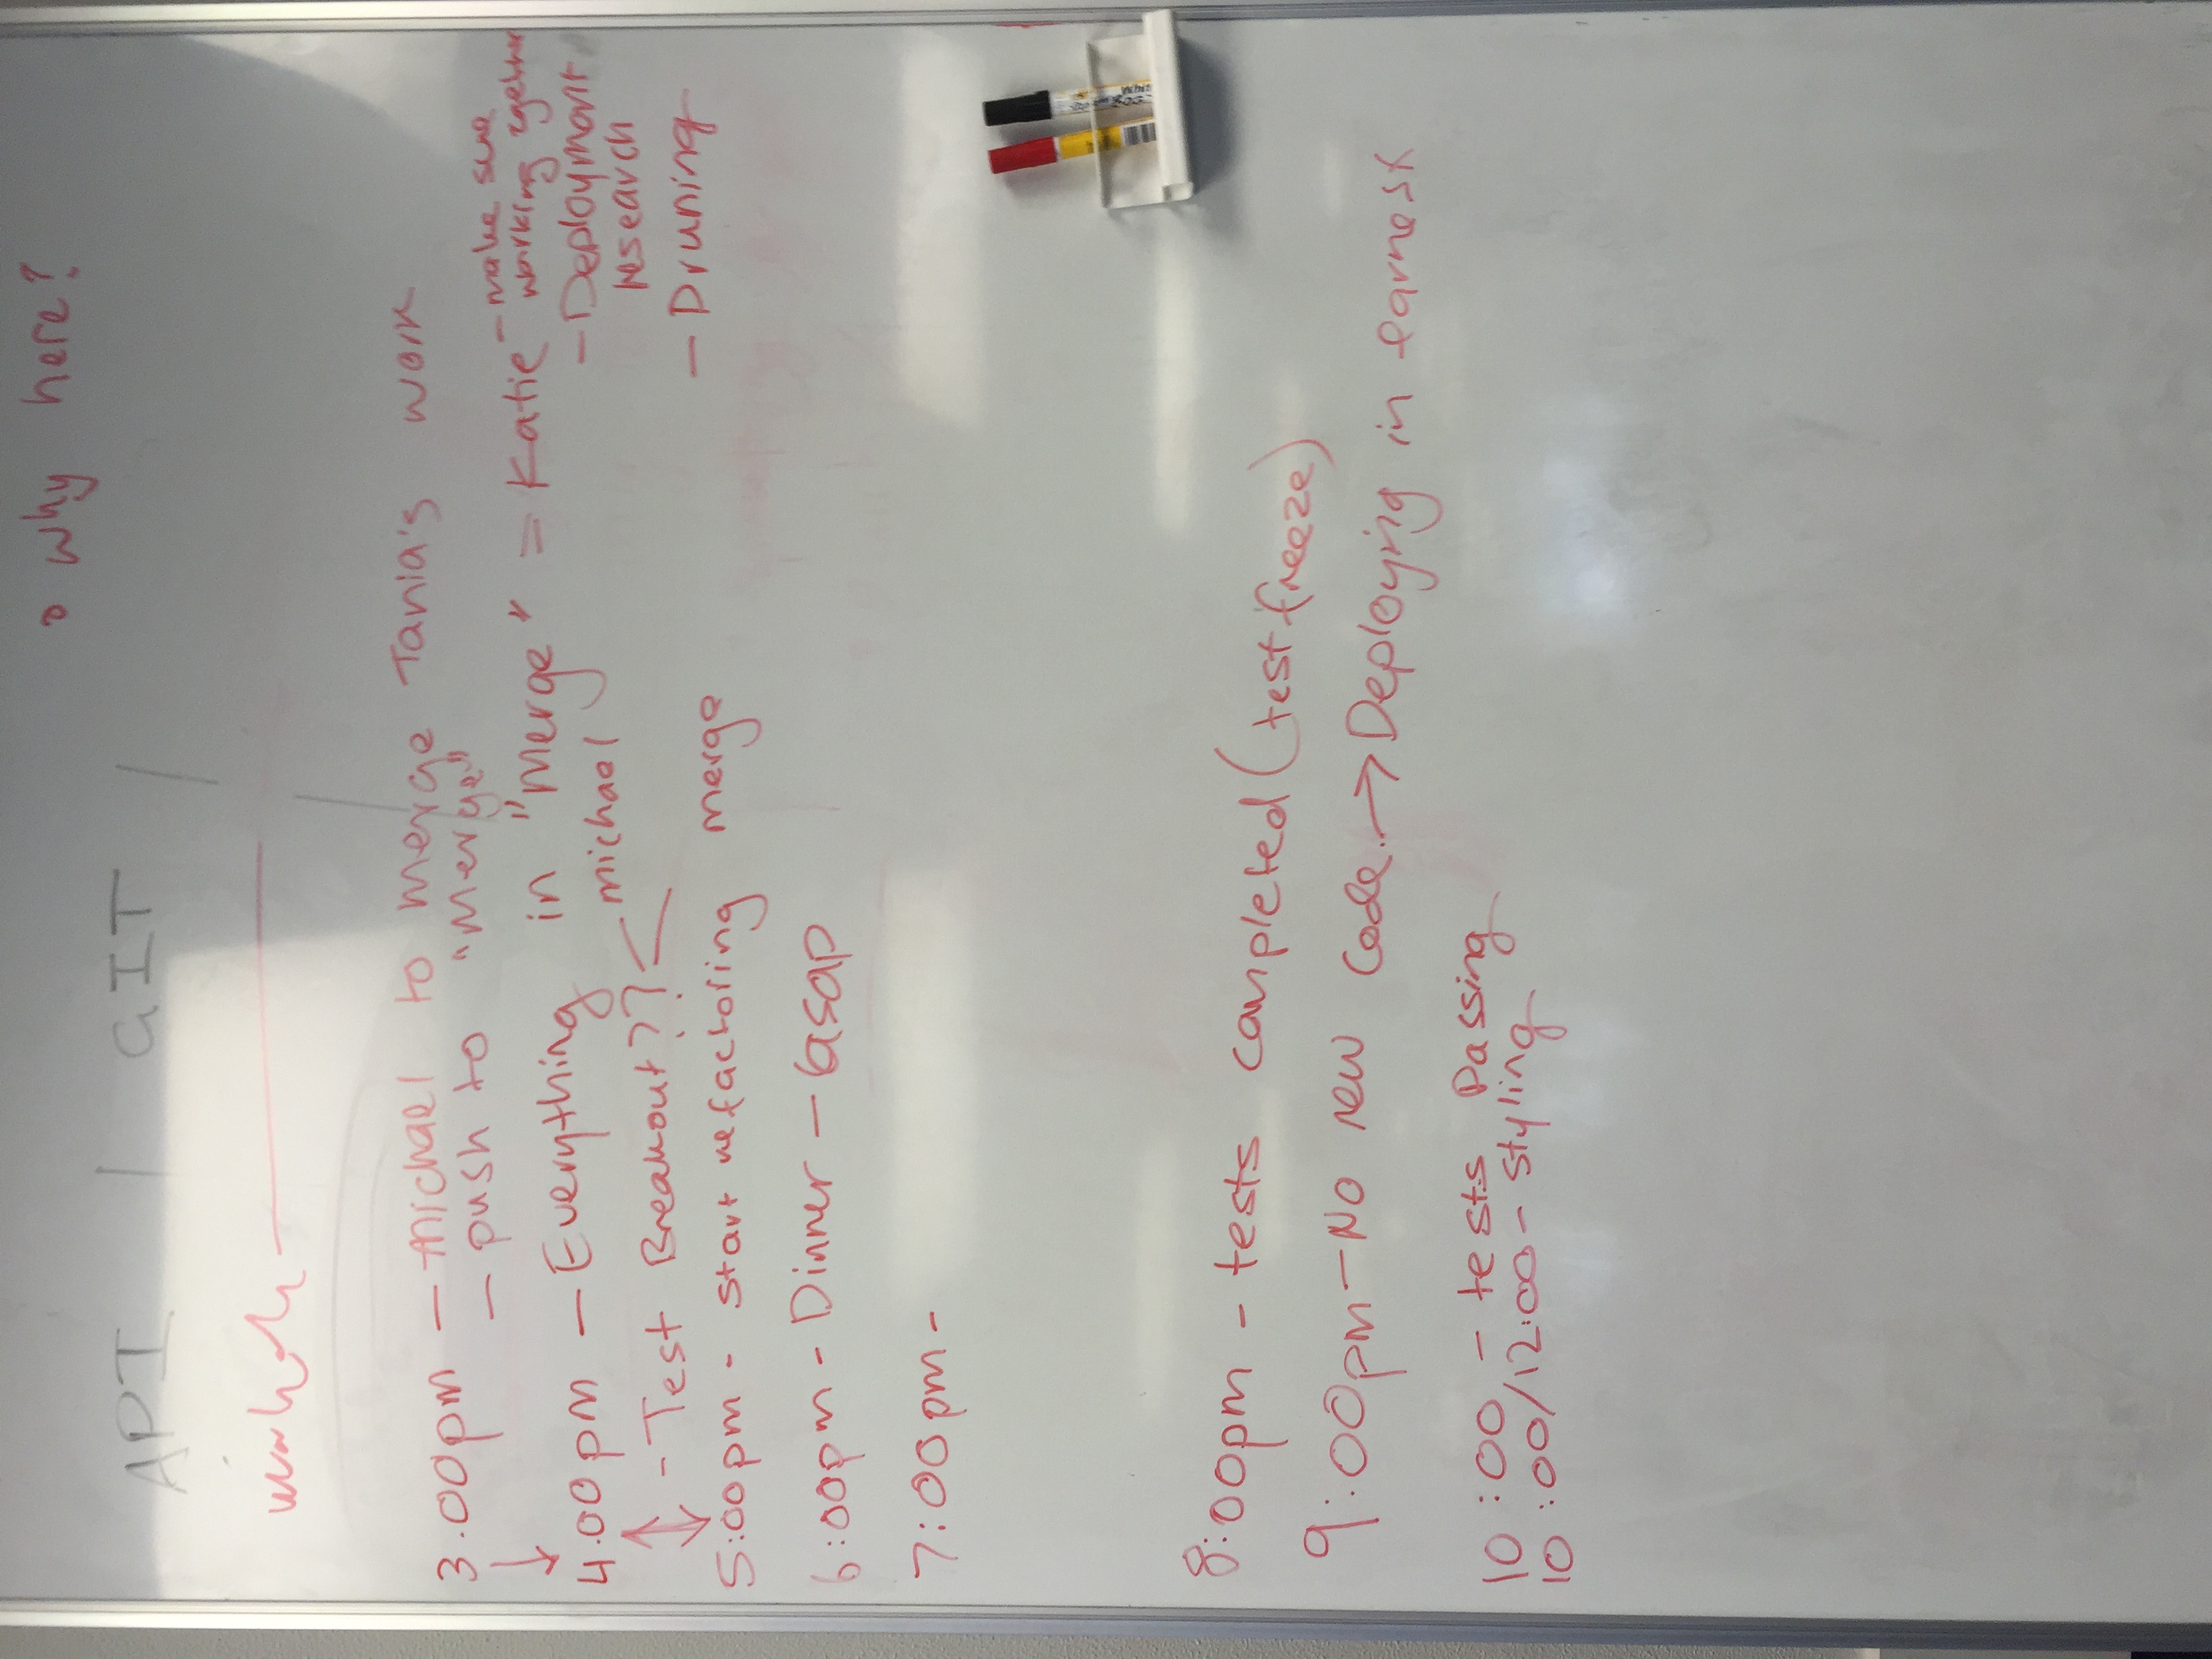 • why here?
API | GIT |
3.00pm – michael to merge Tania's work
– push to "Merge"
4.00pm – Everything in "merge" = Katie – make sure
working together
– Deployment
research
– Test Breakout?? michael
– Druning
5:00pm - start refactoring merge
6:00pm - Dinner – asap
7:00pm -
8:00pm - tests completed (test freeze)
9:00pm – No new code. → Deploying in earnest
10:00 – tests passing
10:00/12:00 – styling